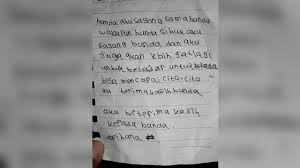 bunda aku sayang sama bunda
walaupun bunda sibuk aku
sayang bunda dan aku
juga akan lebih giat lagi
untuk belajar untuk
bisa mencapai cita-cita
ku terima kasih bunda
aku beterima kasih
kepada bunda